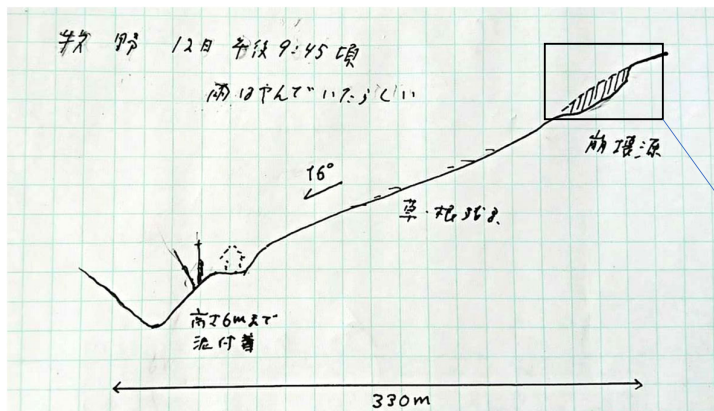 牧野 12日 午後9:45頃
雨はやんでいたらしい
崩壊源
16°
草・根残る
高さ6mまで
泥付着
330m